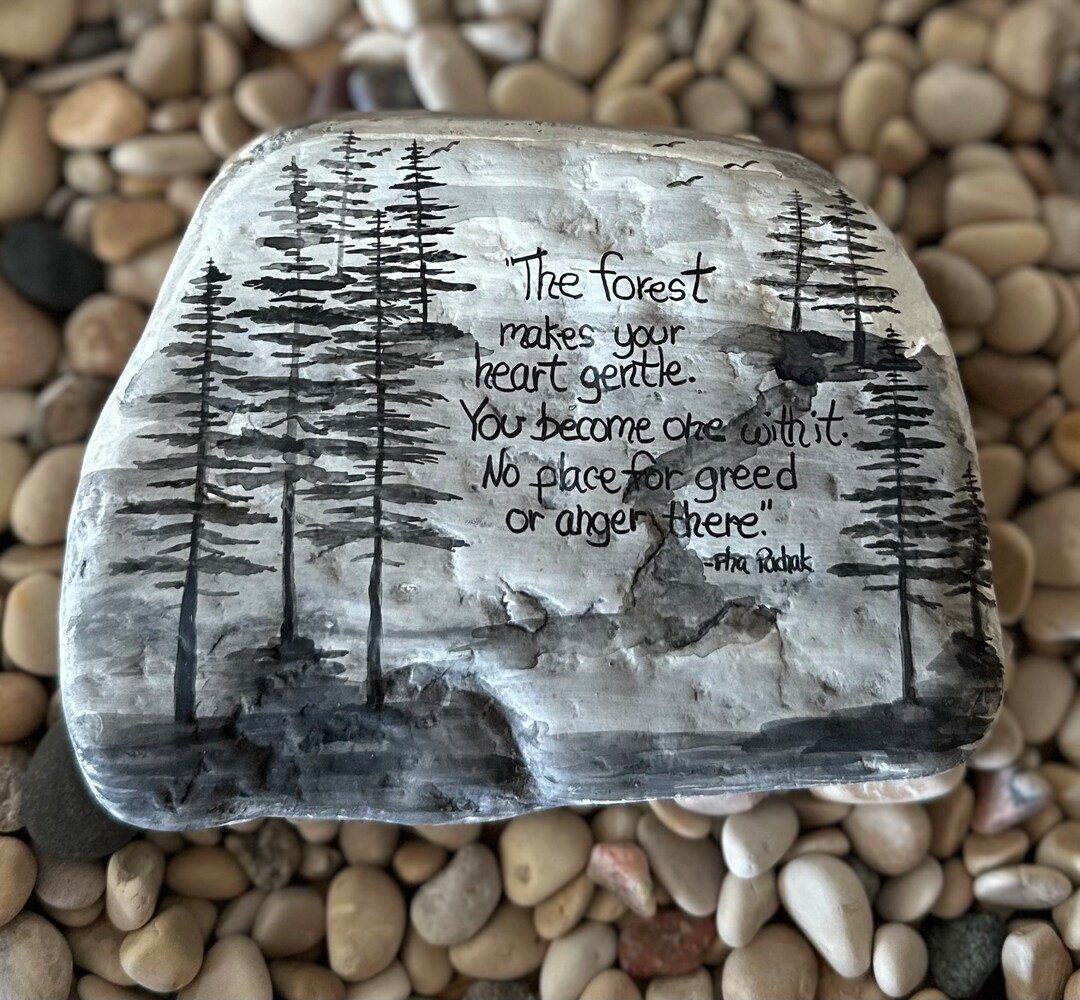 "The forest
makes your
heart gentle.
You become one with it.
No place for greed
or anger there."
-Pha Pachak